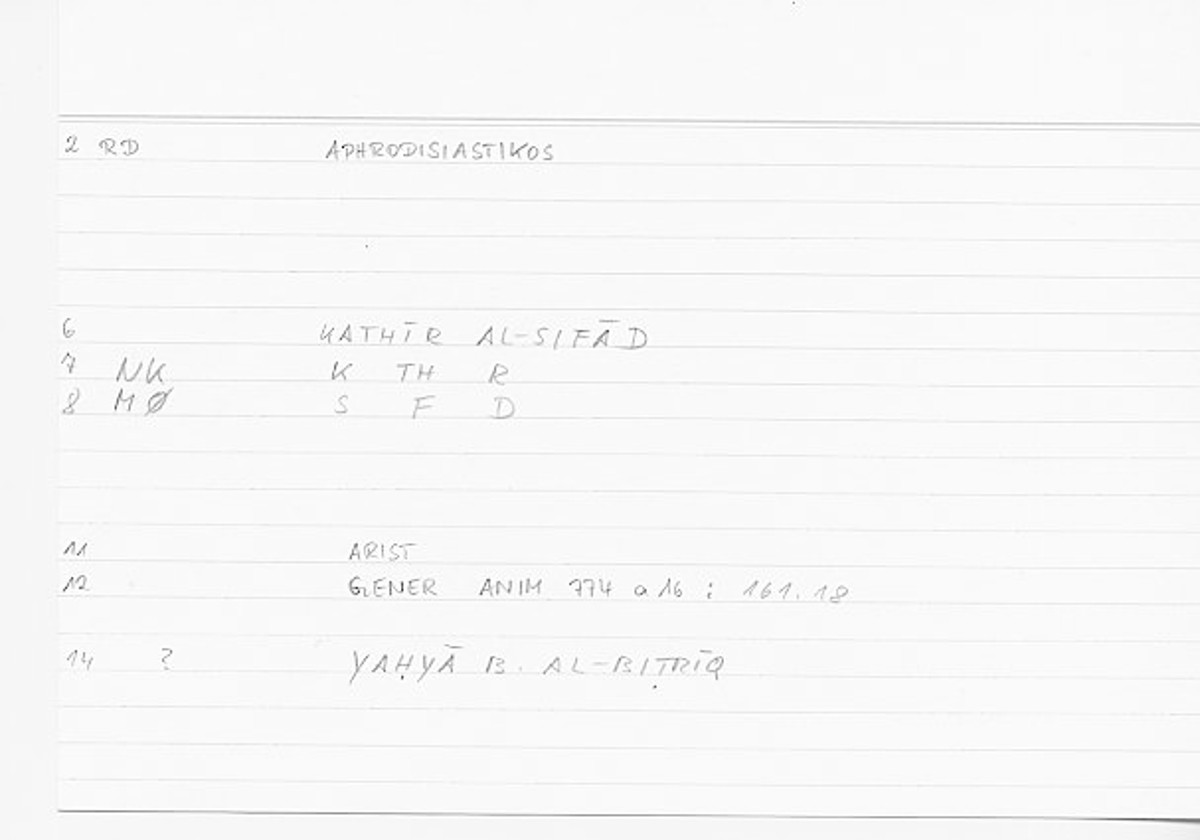 2 RD APHRODISIASTIKOS
6 KATHĪR AL-SIFĀD
7 NK K TH R
8 MØ S F D
11 ARIST
12 GENER ANIM 774 a 16 ; 161.18
14 ? YAḤYĀ B. AL-BIṬRĪQ